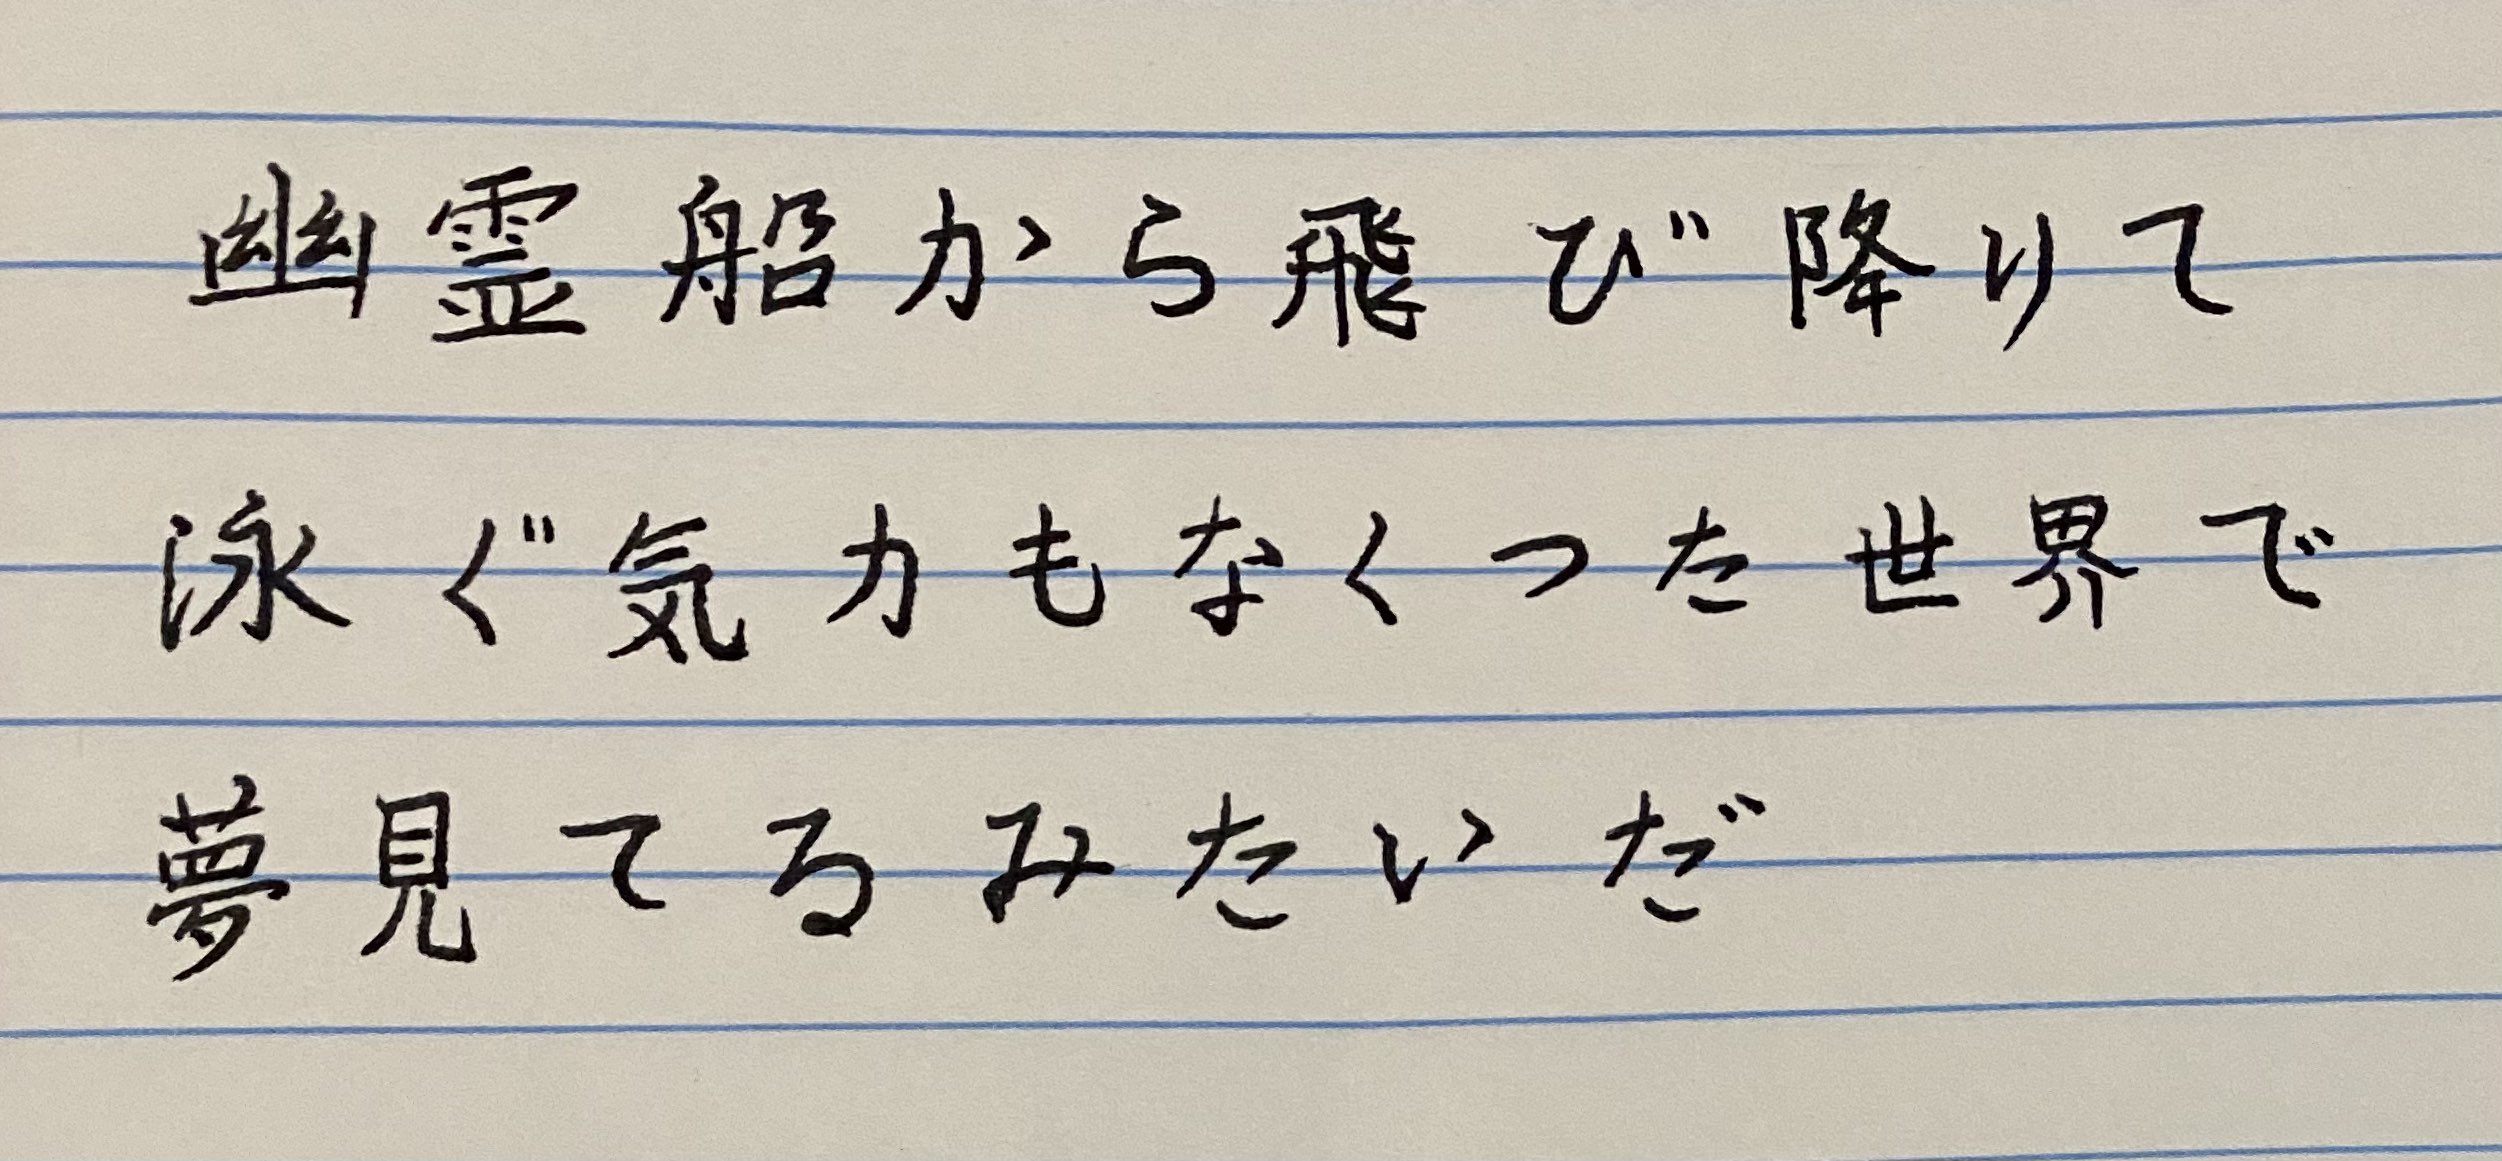 幽霊船から飛び降りて
泳ぐ気力もなくった世界で
夢見てるみたいだ